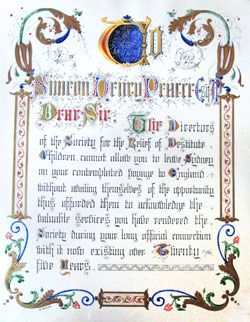 To
Simeon Henry Pearce Esq.
Dear Sir. The Directors
of the Society for the Relief of Destitute
Children, cannot allow you to leave Sydney
on your contemplated voyage to England
without availing themselves of the opportunity
thus afforded them to acknowledge the
valuable services you have rendered the
Society during your long official connection
with it now existing over Twenty
five Years.